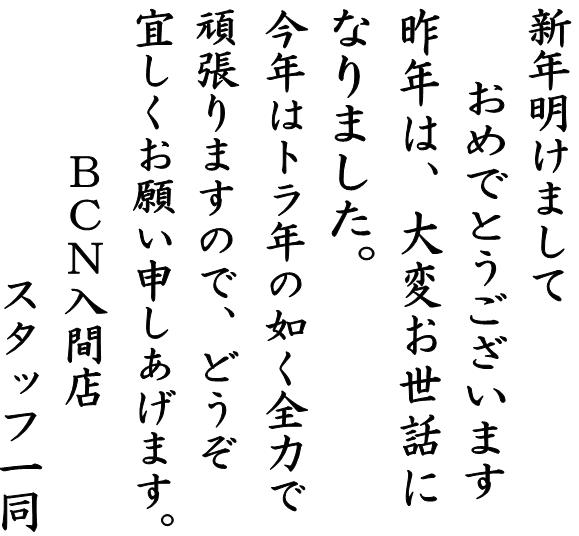 新年明けまして
おめでとうございます
昨年は、大変お世話に
なりました。
今年はトラ年の如く全力で
頑張りますので、どうぞ
宜しくお願い申しあげます。
ＢＣＮ入間店
スタッフ一同